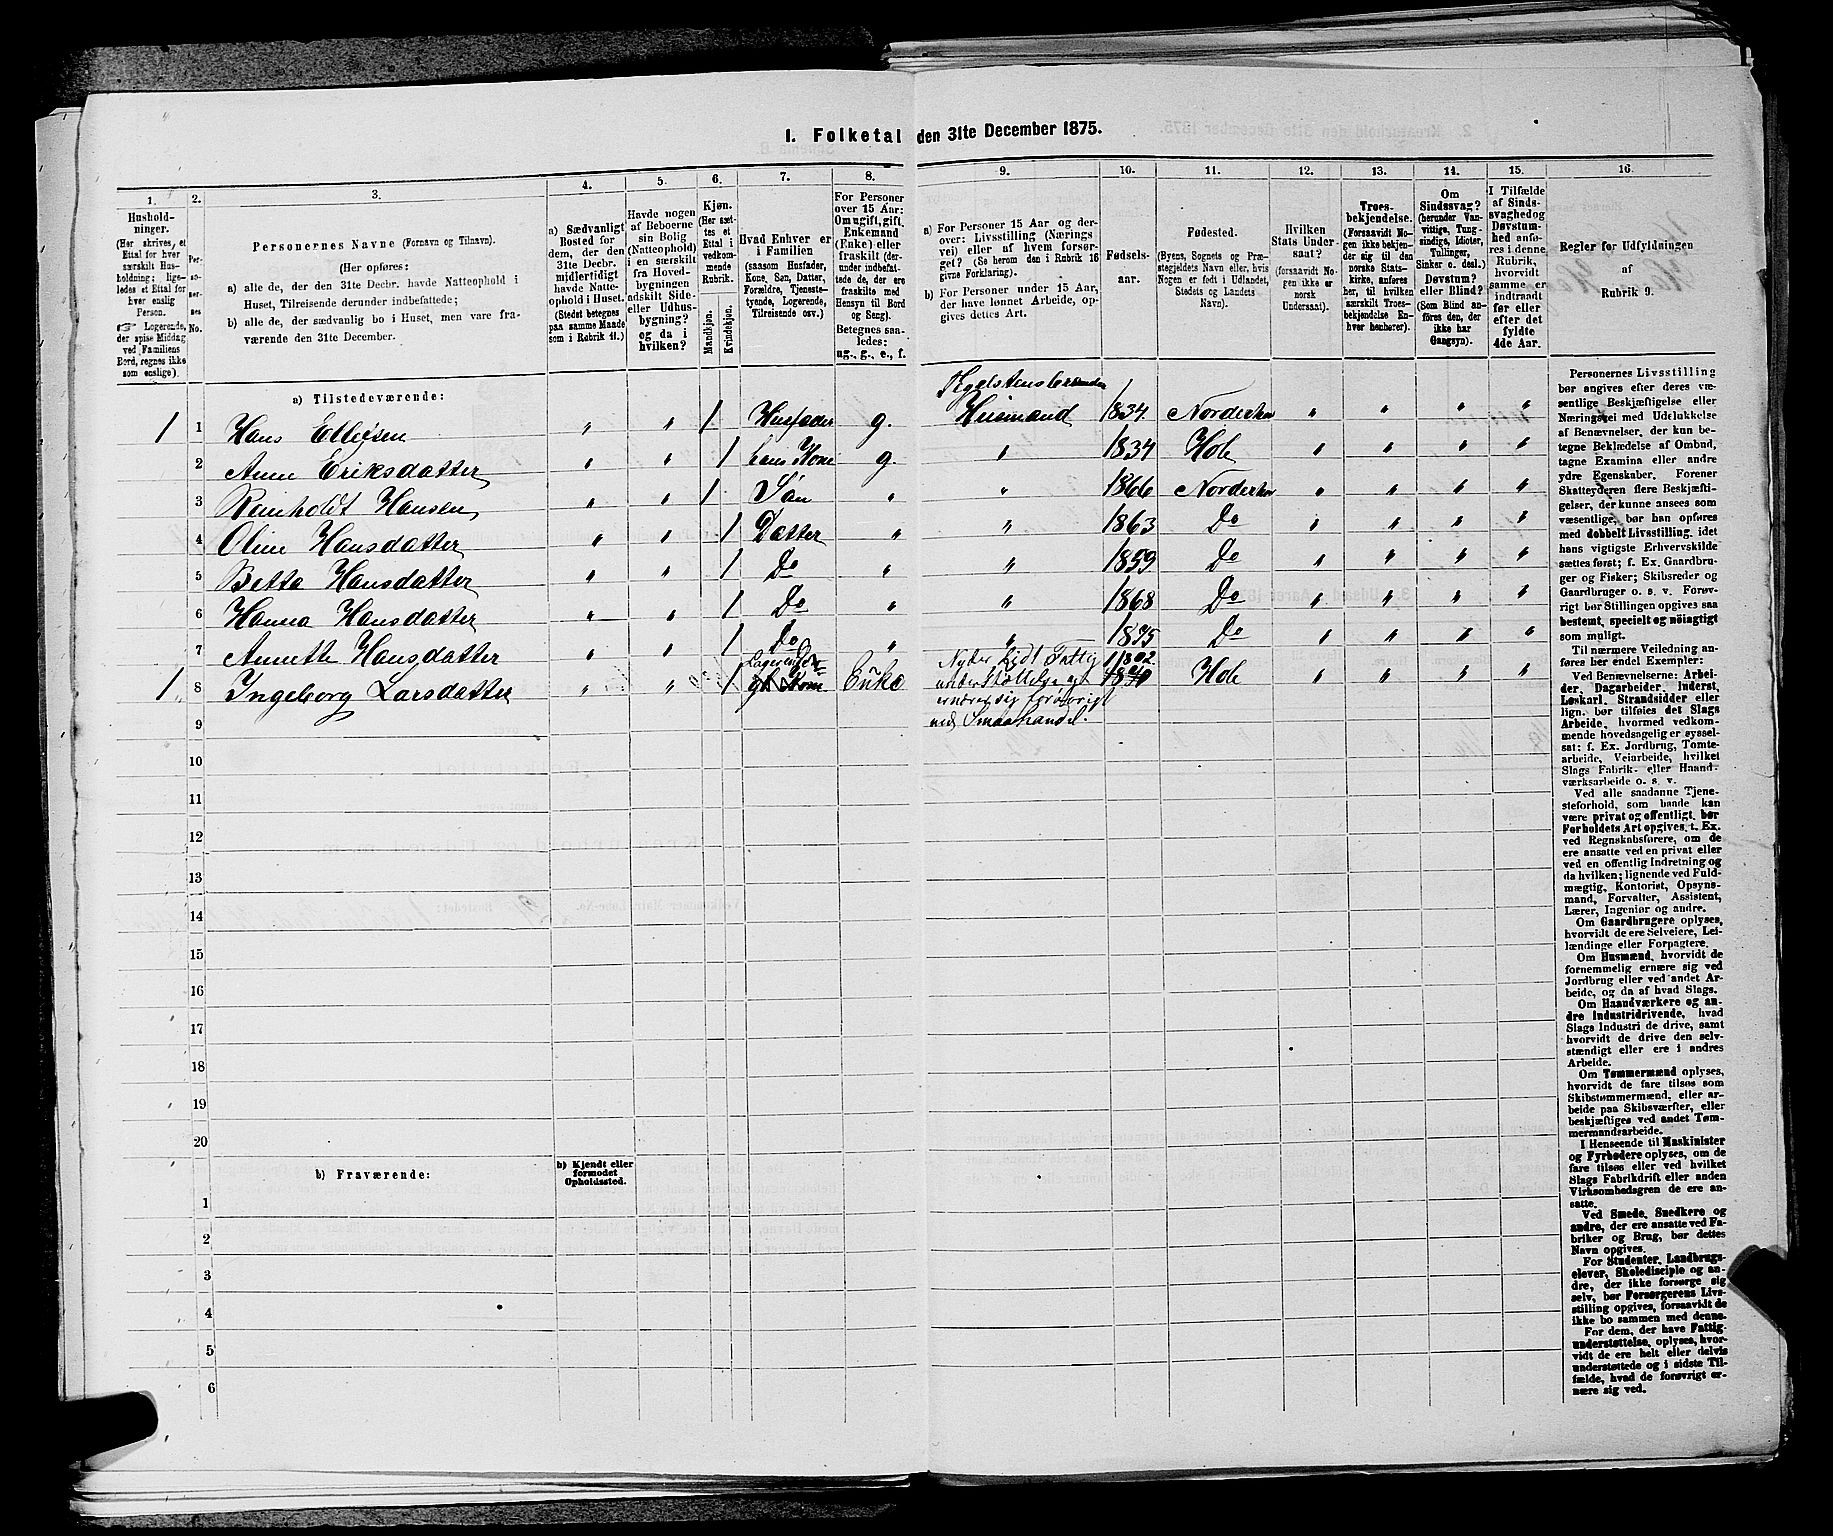 1. Folketal den 31te December 1875.
1. 2. 3. 4. 5. 6. 7. 8. 9. 10. 11. 12. 13. 14. 15. 16.
Hushold-
ninger.
(Her skrives, et
Ettal for hver
særskilt Hus-
holdning; lige-
ledes et Ettal for
hver enslig
Person.
☞ Logerende,
der spise Middag
ved Familiens
Bord, regnes ikke
som enslige).
Per-
so-
ner-
nes
No.
Personernes Navne (Fornavn og Tilnavn).
(Her opføres:
a) alle de, der den 31te Decbr. havde Natteophold i
Huset, Tilreisende derunder indbefattede;
b) alle de, der sædvanlig bo i Huset, men vare fra-
værende den 31te December.
a) Sædvanligt
Bosted for
dem, der den
31te Decbr.
midlertidigt
havde Natte-
ophold i Huset.
(Stedet betegnes
paa samme Maade
som i Rubrik 11.)
Havde nogen
af Beboerne
sin Bolig
(Natteophold)
i en særskilt
fra Hoved-
bygningen
adskilt Side-
eller Udhus-
bygning?
og da i
hvilken?
Kjøn.
(Her sæt-
tes et
Ettal i
vedkom-
mende
Rubrik.
Mandkjøn.
Kvindekjøn.
Hvad Enhver er
i Familien
(saasom Husfader,
Kone, Søn, Datter,
Forældre, Tjeneste-
tyende, Logerende,
Tilreisende osv.)
For Personer
over 15 Aar:
Om ugift, gift,
Enkemand
(Enke) eller
fraskilt (der-
under indbefat-
tede de, der ere
fraskilte med
Hensyn til Bord
og Seng).
Betegnes saa-
ledes:
ug., g., e., f.
a) For Personer 15 Aar og der-
over: Livsstilling (Nærings-
vei) eller af hvem forsør-
get? (Se herom den i Rubrik 16
givne Forklaring).
b) For Personer under 15 Aar,
der have lønnet Arbeide, op-
gives dettes Art.
Fødsels-
aar.
Fødested.
(Byens, Sognets og Præ-
stegjeldets Navn eller, hvis
Nogen er født i Udlandet,
Stedets og Landets
Navn).
Hvilken
Stats Under-
saat?
(forsaavidt No-
gen ikke er
norsk
Undersaat).
Troes-
bekjendelse.
(Forsaavidt No-
gen ikke bekjen-
der sig til den
norske Stats-
kirke, anføres
her, til hvilken
særskilt Troes-
bekjendelse En-
hver henhører).
Om
Sindssvag?
(herunder Van-
vittige, Tung-
sindige, Idioter,
Tullinger,
Sinker o. desl.)
Døvstum?
eller Blind?
(Som Blind an-
føres den, der
ikke har
Gangsyn).
I Tilfælde
af Sinds-
svaghed og
Døvstum-
hed anfø-
res i denne
Rubrik,
hvorvidt
samme er
indtraadt
før eller
efter det
fyldte
4de Aar.
Regler for Udfyldningen
af
Rubrik 9.
a) Tilstedeværende:
Teglstensbrænder
1 1 Hans Ellefsen " " 1 Husfader g. Husmand 1834 Norderhov " " " "
2 Anne Eriksdatter " " 1 hans Kone g. " 1834 Hole " " " "
3 Reinholdt Hansen " " 1 Søn " " 1866 Norderhov " " " "
4 Oline Hansdatter " " 1 Datter " " 1863 Do " " " "
5 Betta Hansdatter " " 1 Do " " 1859 Do " " " "
6 Hanna Hansdatter " " 1 Do " " 1868 Do " " " "
7 Annette Hansdatter " " 1 Do " " 1875 Do " " " "
1 8 Ingeborg Larsdatter " " 1 Logerende Enke Nyder lidt Fattig 1802 Hole " " " "
understøttelse og
ernærer sig forøvrigt
ved Smaahandel.
9
10
11
12
13
14
15
16
17
18
19
20
b) Fraværende:
b) Kjendt eller
formodet
Opholdssted.
1
2
3
4
5
6
Personernes Livsstilling
bør angives efter deres væ-
sentlige Beskjæftigelse eller
Næringsvei med Udelukkelse
af Benævnelser, der kun be-
tegne Beklædelse af Ombud,
tagne Examina eller andre
ydre Egenskaber. Forener
Skatteyderen flere Beskjæfti-
gelser, der kunne ansees som
væsentlige, bør han opføres
med dobbelt Livsstilling, idet
hans vigtigste Erhvervskilde
sættes først; f. Ex. Gaardbru-
ger og Fisker; Skibsreder og
Gaardbruger o. s. v. Forøv-
rigt bør Stillingen opgives saa
bestemt, specielt og nøiagtigt
som muligt.
Til nærmere Veiledning an-
føres her endel Exempler:
Ved Benævnelserne: Arbei-
der, Dagarbeider, Inderst,
Løskarl, Strandsidder eller
lign. bør tilføies det Slags
Arbeide, hvormed vedkom-
mende hovedsagelig er syssel-
sat; f. Ex. Jordbrug, Tomte-
arbeide, Veiarbeide, hvilket
Slags Fabrik- eller Haand-
værksarbeide o. s. v.
Ved alle saadanne Tjene-
steforhold, som baade kan
være privat og offentligt, bør
Forholdets Art opgives, t. Ex.
ved Regnskabsførere, om de
ere ansatte ved en privat eller
ved en offentlig Indretning og
da hvilken; lignende ved Fuld-
mægtig, Kontorist, Opsyns-
mand, Forvalter, Assistent,
Lærer, Ingeniør og andre.
Om Gaardbrugere oplyses,
hvorvidt de ere Selveiere, Lei-
lændinge eller Forpagtere.
Om Husmænd, hvorvidt de
fornemmelig ernære sig ved
Jordbrug eller ved andet Ar-
beide, og da af hvad Slags.
Om Haandværkere og an-
dre Industridrivende, hvad
Slags Industri de drive, samt
hvorvidt de drive den selv-
stændigt eller ere i andres
Arbeide.
Om Tømmermænd oplyses,
hvorvidt de fare tilsøs som
Skibstømmermænd, eller ar-
beide paa Skibsværfter, eller
beskjæftiges ved andet Tøm-
mermandsarbeide.
I Henseende til Maskinister
og Fyrbødere oplyses, om de
fare tilsøs eller ved hvilket
Slags Fabrikdrift eller anden
Virksomhedsgren de ere an-
satte.
Ved Smede, Snedkere og
andre, der ere ansatte ved Fa-
briker og Brug, bør dettes
Navn opgives.
For Studenter, Landbrugs-
elever, Skoledisciple og an-
dre, der ikke forsørge sig
selv, bør Forsørgerens Livs-
stilling opgives, forsaavidt de
ikke bo sammen med denne.
For dem, der have Fattig-
understøttelse, oplyses, hvor-
vidt de ere helt eller delvis
understøttede og i sidste Til-
fælde, hvad de forøvrigt er-
nære sig ved.